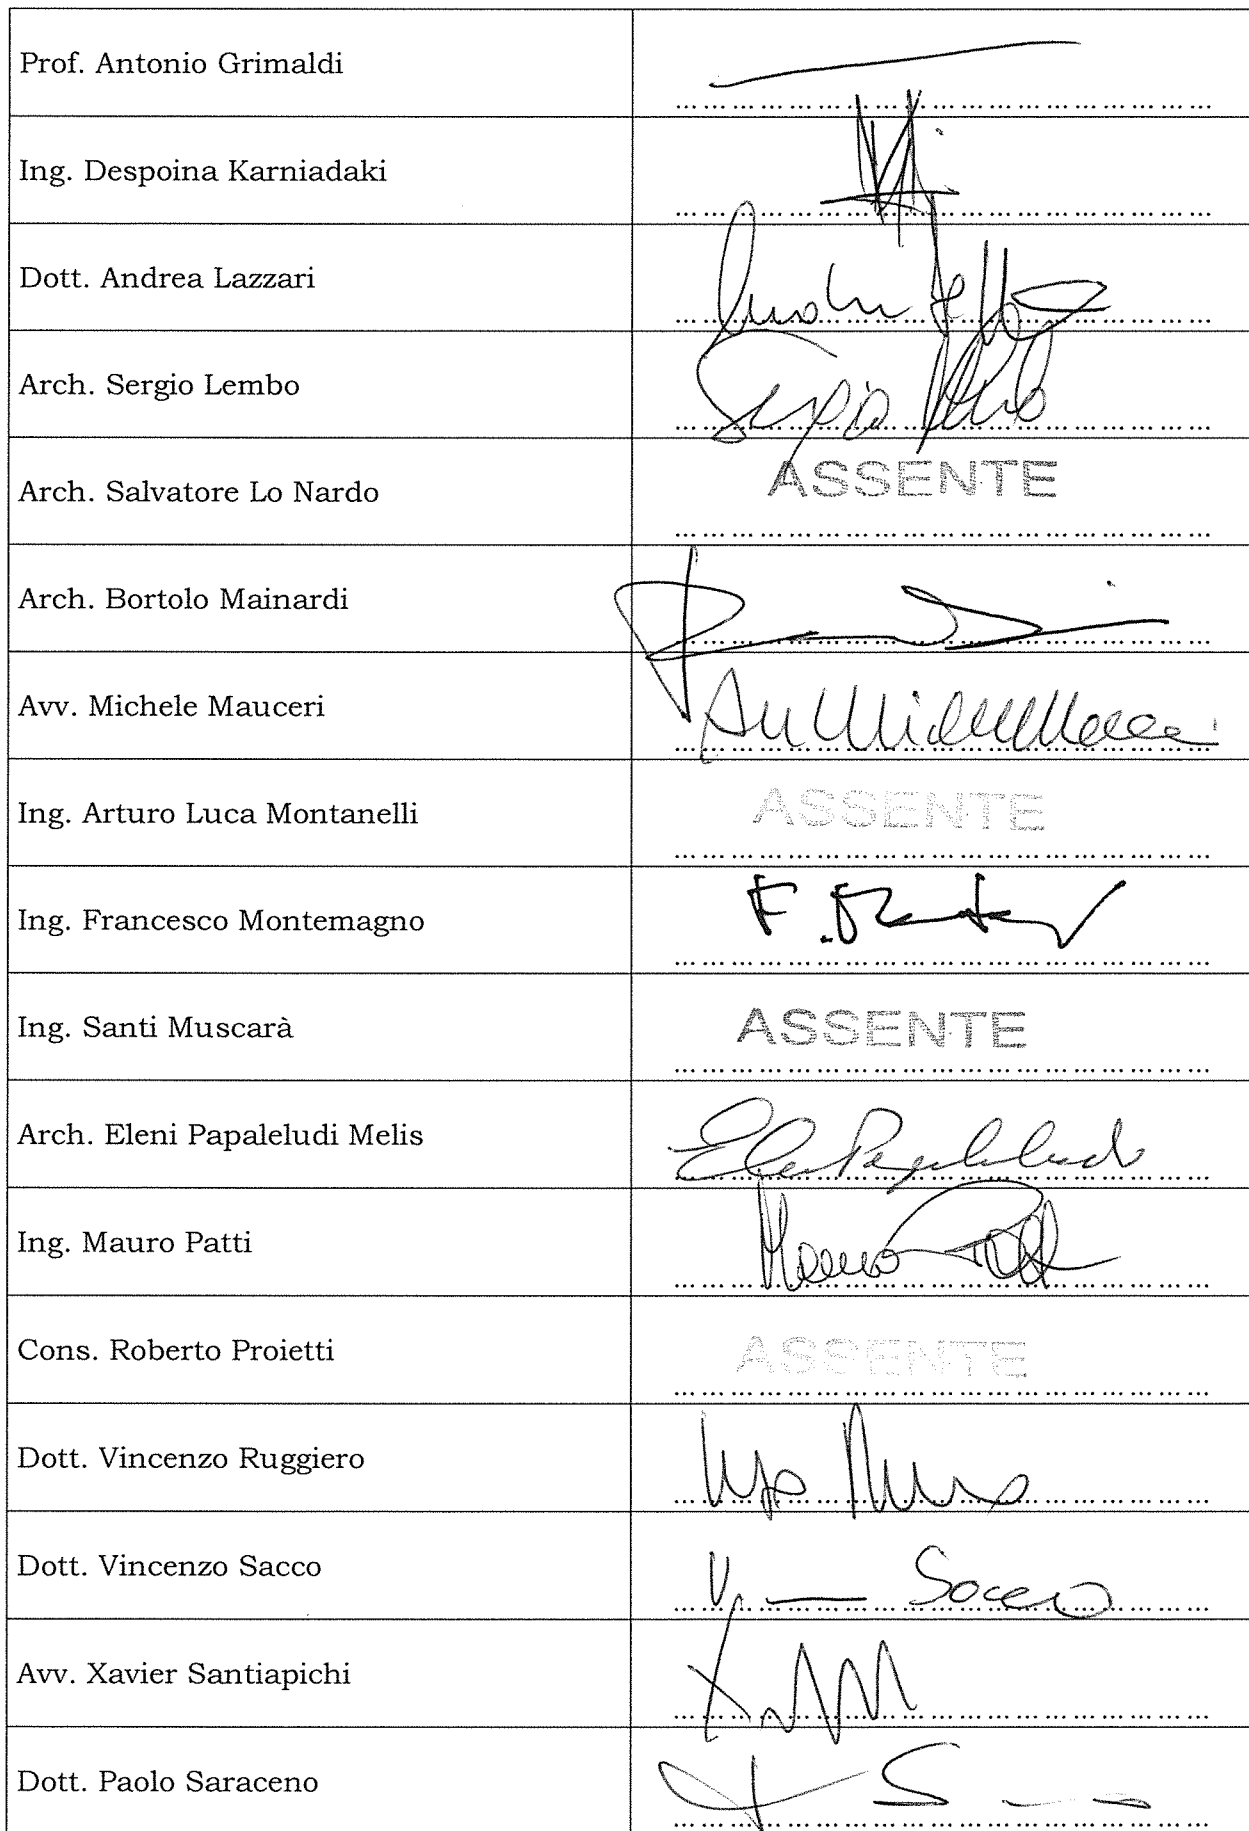 Prof. Antonio Grimaldi
Ing. Despoina Karniadaki
Dott. Andrea Lazzari
Arch. Sergio Lembo
Arch. Salvatore Lo Nardo ASSENTE
Arch. Bortolo Mainardi
Avv. Michele Mauceri
Ing. Arturo Luca Montanelli ASSENTE
Ing. Francesco Montemagno
Ing. Santi Muscarà ASSENTE
Arch. Eleni Papaleludi Melis
Ing. Mauro Patti
Cons. Roberto Proietti ASSENTE
Dott. Vincenzo Ruggiero
Dott. Vincenzo Sacco
Avv. Xavier Santiapichi
Dott. Paolo Saraceno